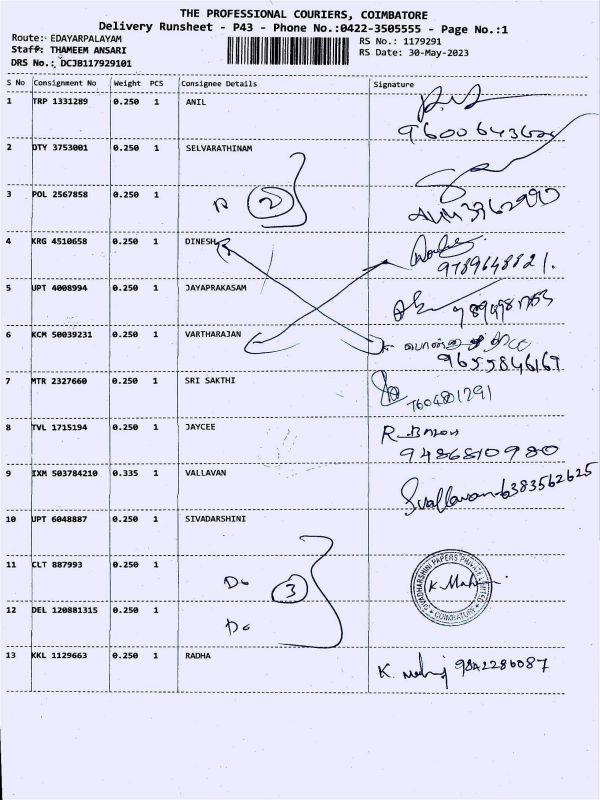 THE PROFESSIONAL COURIERS, COIMBATORE
Delivery Runsheet - P43 - Phone No.:0422-3505555 - Page No.:1
Route: EDAYARPALAYAM
RS No.: 1179291
Staff: THAMEEM ANSARI
RS Date: 30-May-2023
DRS No.: DCJB117929101
S No Consignment No Weight PCS Consignee Details Signature
1 TRP 1331289 0.250 1 ANIL
2 DTY 3753001 0.250 1 SELVARATHINAM
3 POL 2567858 0.250 1 2
4 KRG 4510658 0.250 1 DINESH
9789648821.
5 UPT 4008994 0.250 1 JAYAPRAKASAM
6 KCM 50039231 0.250 1 VARTHARAJAN
9655846167
7 MTR 2327660 0.250 1 SRI SAKTHI
7604801291
8 TVL 1715194 0.250 1 JAYCEE
9486810980
9 IXM 503784210 0.335 1 VALLAVAN
S.vallavan 6383562625
10 UPT 6048887 0.250 1 SIVADARSHINI
11 CLT 887993 0.250 1
Do 3
12 DEL 120881315 0.250 1
Do
13 KKL 1129663 0.250 1 RADHA
9842286087